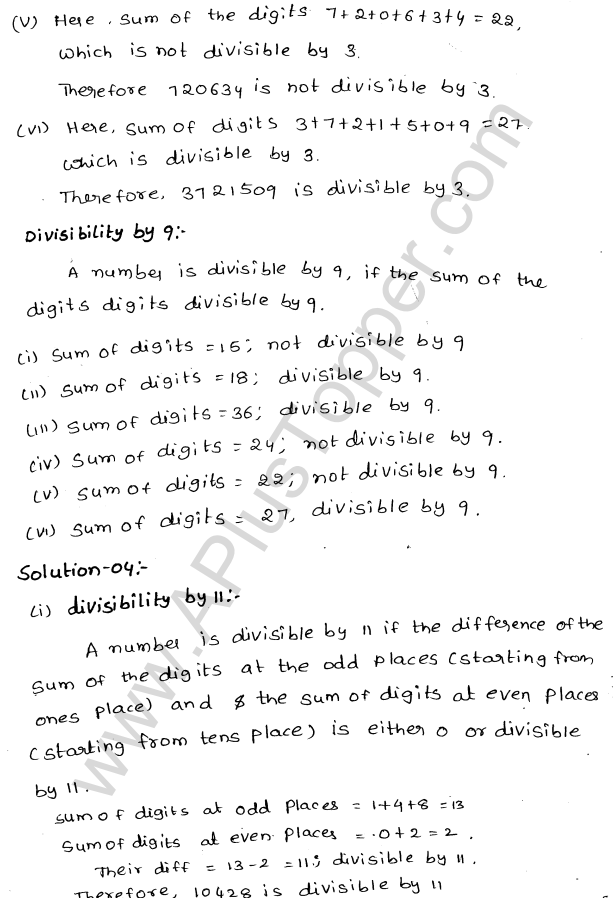 (V) Here, sum of the digits 7+2+0+6+3+4 = 22,
which is not divisible by 3.
Therefore 720634 is not divisible by 3.
(VI) Here, sum of digits 3+7+2+1+5+0+9 = 27.
which is divisible by 3.
Therefore, 3721509 is divisible by 3.
Divisibility by 9:-
A number is divisible by 9, if the sum of the
digits digits divisible by 9.
(i) sum of digits = 15; not divisible by 9
(ii) sum of digits = 18; divisible by 9.
(iii) sum of digits = 36; divisible by 9.
(iv) sum of digits = 24; not divisible by 9.
(v) sum of digits = 22; not divisible by 9.
(vi) sum of digits = 27, divisible by 9.
Solution-04:-
(i) divisibility by 11:-
A number is divisible by 11 if the difference of the
sum of the digits at the odd places (starting from
ones place) and & the sum of digits at even places
(starting from tens place) is either 0 or divisible
by 11.
sum of digits at odd places = 1+4+8 = 13
Sum of digits at even places = 0+2 = 2.
Their diff = 13-2 = 11; divisible by 11.
Therefore, 10428 is divisible by 11
www.APlusTopper.com